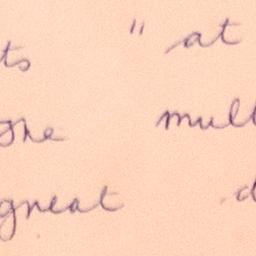 ts " at
the mull
great d